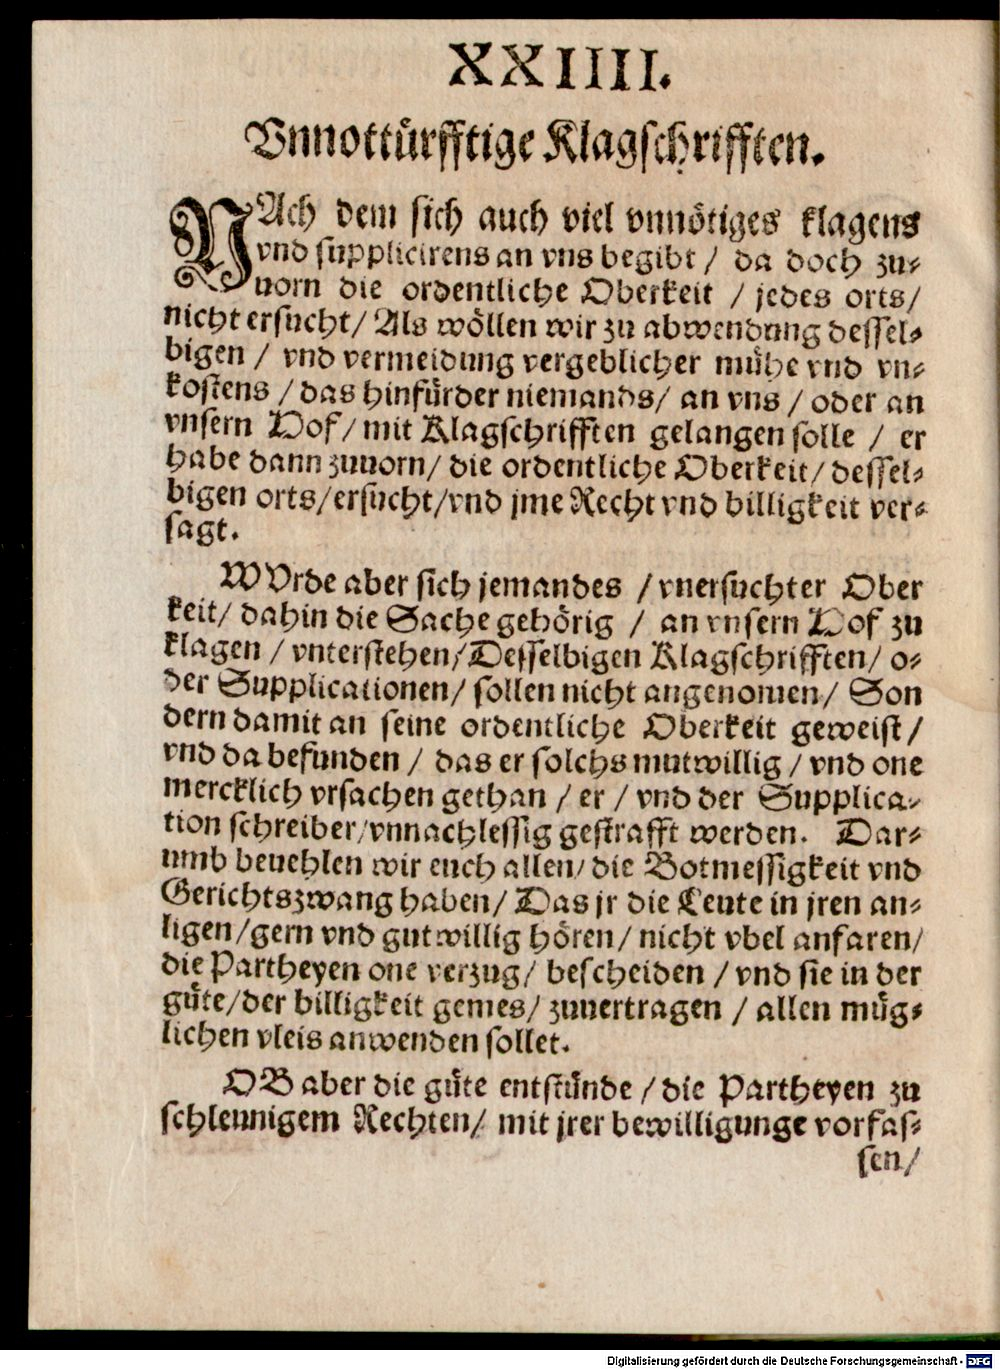 XXIIII.
Vnnottürfftige Klagschrifften.
NAch dem sich auch viel vnnötiges klagens
vnd supplicirens an vns begibt / da doch zu-
uorn die ordentliche Oberkeit / jedes orts/
nicht ersucht/ Als wöllen wir zu abwendung dessel-
bigen / vnd vermeidung vergeblicher mühe vnd vn-
kostens / das hinfürder niemands/ an vns / oder an
vnsern Hof/ mit Klagschrifften gelangen solle / er
habe dann zuuorn/ die ordentliche Oberkeit/ dessel-
bigen orts/ersucht/vnd jme Recht vnd billigkeit ver-
sagt.
WVrde aber sich jemandes / vnersuchter Ober
keit/ dahin die Sache gehörig / an vnsern Hof zu
klagen / vnterstehen/Desselbigen Klagschrifften/ o-
der Supplicationen/ sollen nicht angenomen/ Son
dern damit an seine ordentliche Oberkeit geweist /
vnd da befunden / das er solchs mutwillig / vnd one
mercklich vrsachen gethan / er / vnd der Supplica-
tion schreiber/vnnachlessig gestrafft werden. Dar-
umb beuehlen wir euch allen/ die Botmessigkeit vnd
Gerichtszwang haben/ Das jr die Leute in jren an-
ligen/gern vnd gutwillig hören/ nicht vbel anfaren/
die Partheyen one verzug/ bescheiden / vnd sie in der
güte/der billigkeit gemes/ zuuertragen / allen müg-
lichen vleis anwenden sollet.
OB aber die güte entstünde / die Partheyen zu
schleunigem Rechten/ mit jrer bewilligunge vorfas-
sen/
Digitalisierung gefördert durch die Deutsche Forschungsgemeinschaft - DFG